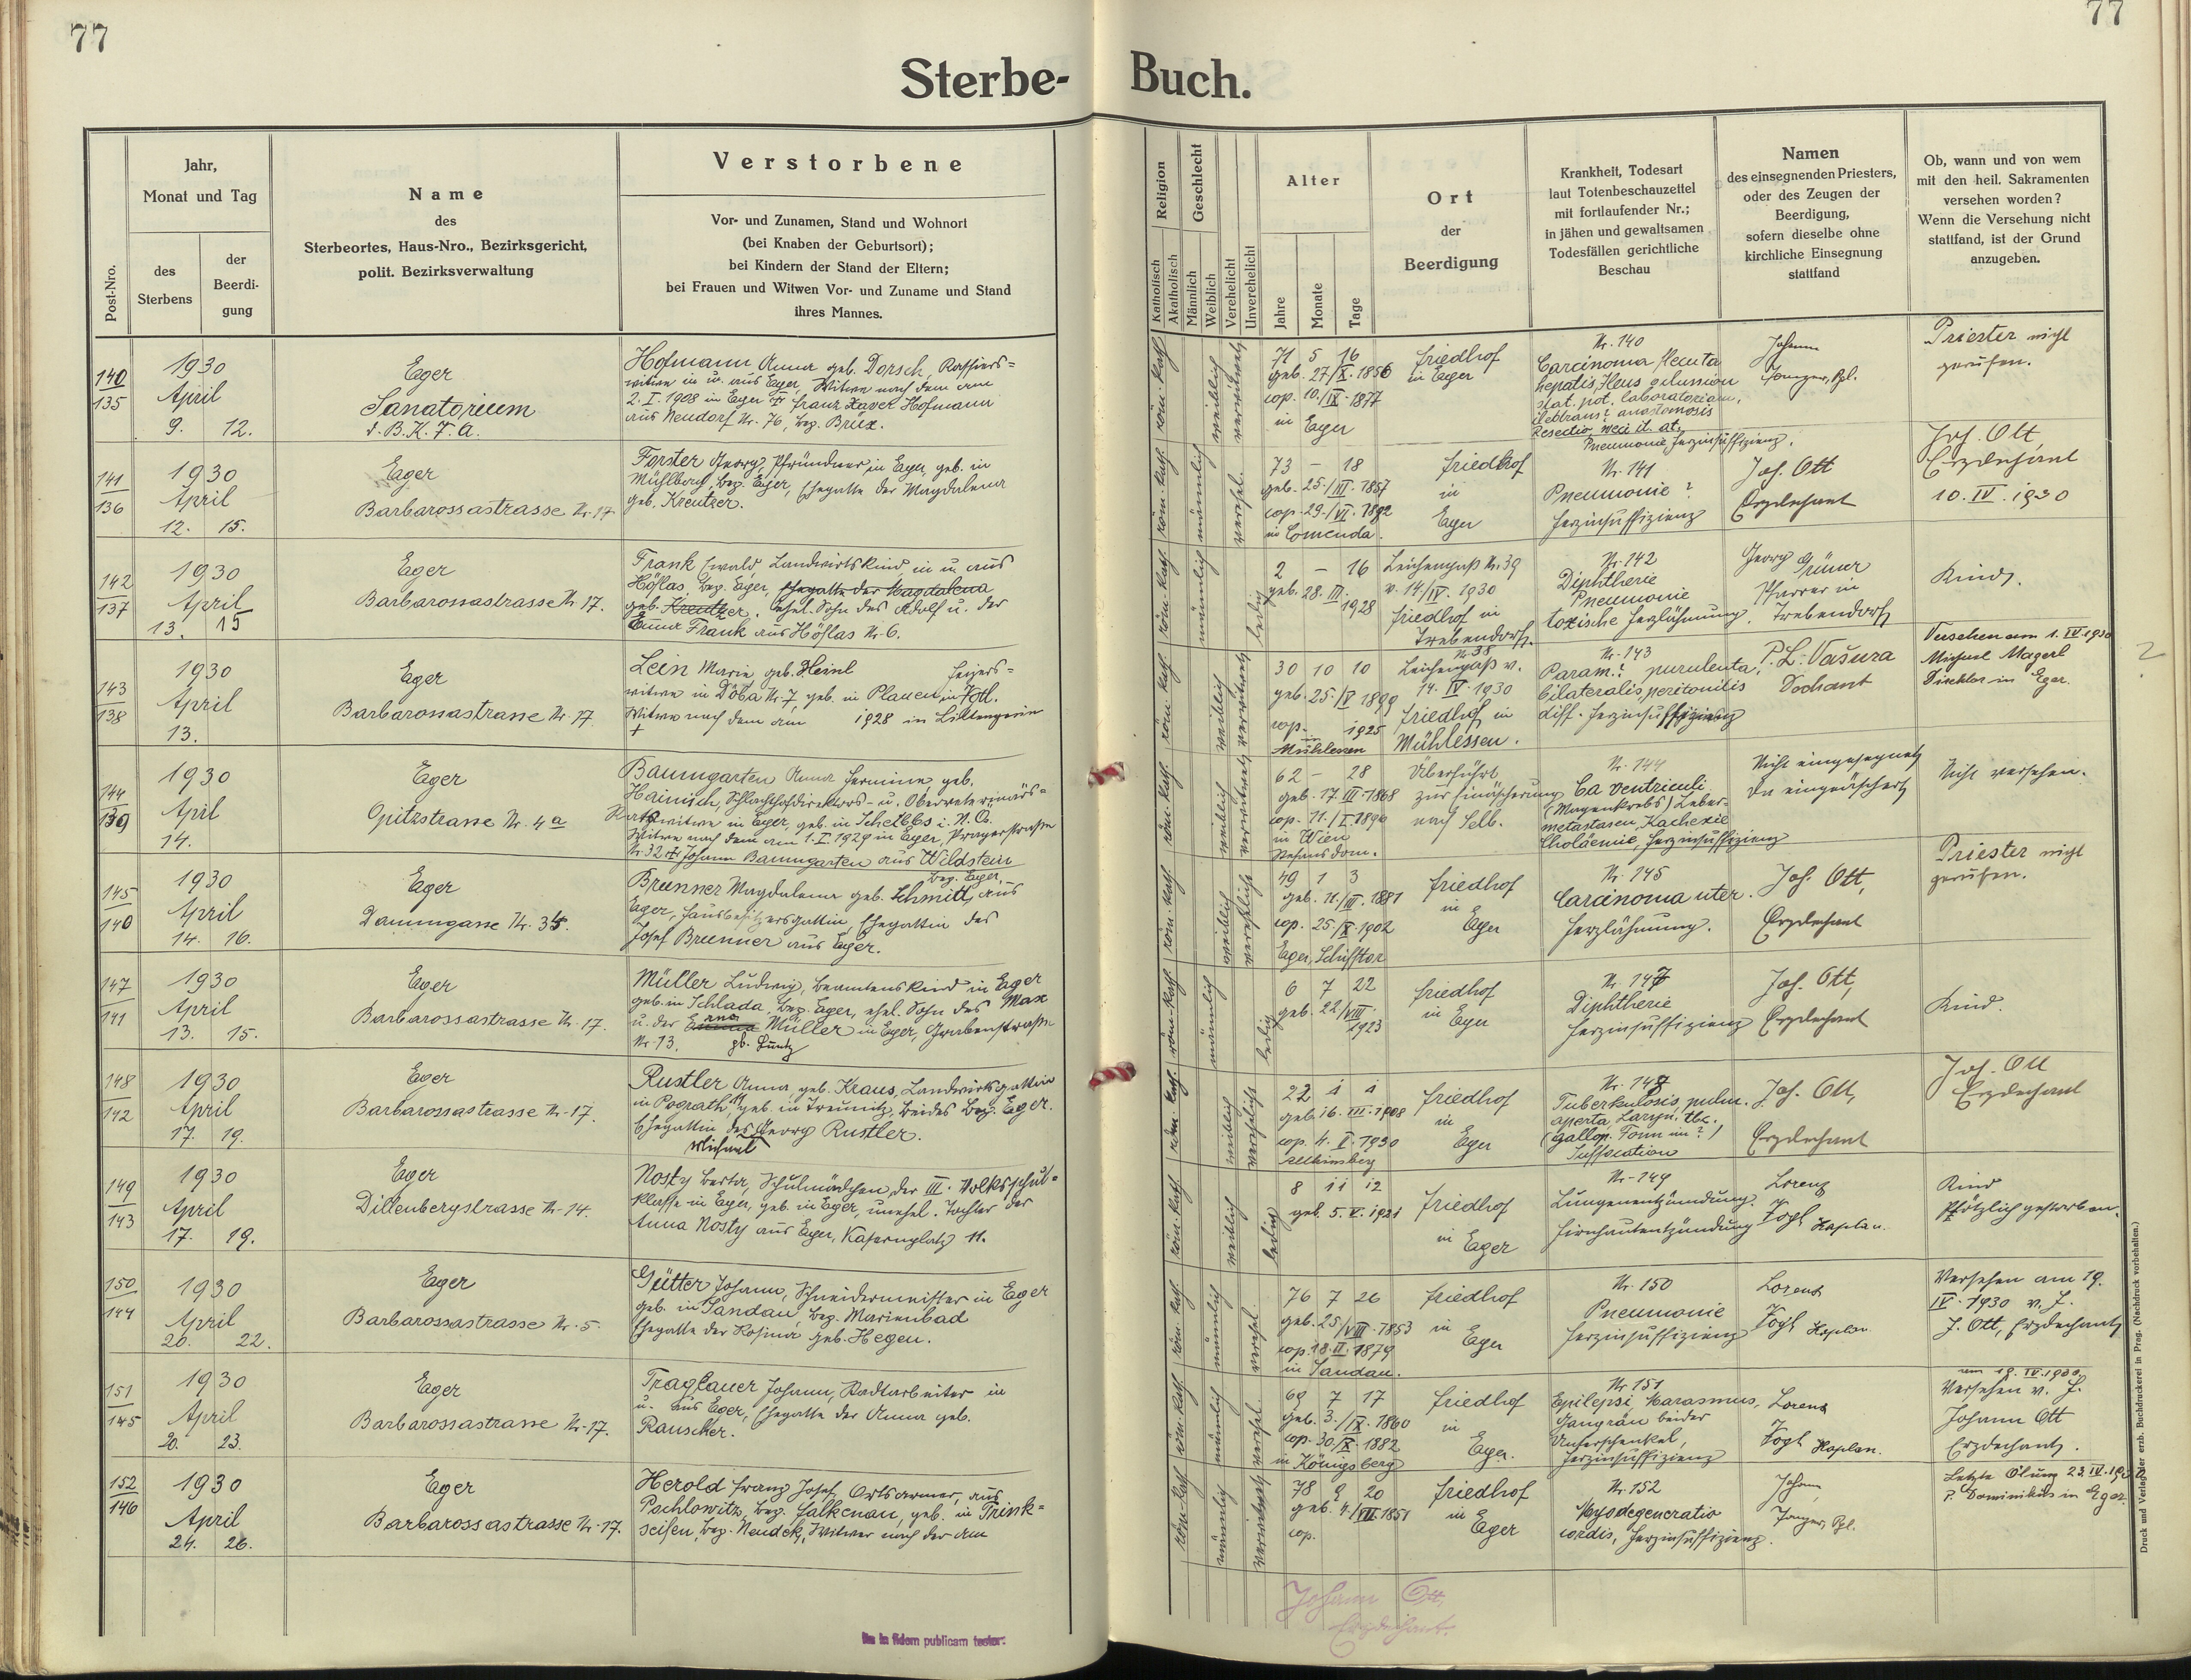 77
77
Sterbe-
Buch.
Post-Nro.
Jahr,
Monat und Tag
des
Sterbens
der
Beerdi-
gung
Name
des
Sterbeortes, Haus-Nro., Bezirksgericht,
polit. Bezirksverwaltung
Verstorbene
Vor- und Zunamen, Stand und Wohnort
(bei Knaben der Geburtsort);
bei Kindern der Stand der Eltern;
bei Frauen und Witwen Vor- und Zuname und Stand
ihres Mannes.
Religion
Katholisch
Akatholisch
Geschlecht
Männlich
Weiblich
Verehelicht
Unverehelicht
Alter
Jahre
Monate
Tage
Ort
der
Beerdigung
Krankheit, Todesart
laut Totenbeschauzettel
mit fortlaufender Nr.;
in jähen und gewaltsamen
Todesfällen gerichtliche
Beschau
Namen
des einsegnenden Priesters,
oder des Zeugen der
Beerdigung,
sofern dieselbe ohne
kirchliche Einsegnung
stattfand
Ob, wann und von wem
mit den heil. Sakramenten
versehen worden?
Wenn die Versehung nicht
stattfand, ist der Grund
anzugeben.
140
135
1930
April
9. 12.
Eger
Sanatorium
d. B. K. F. A.
Hofmann Anna geb. Dorsch, Kassiers=
witwe in u. aus Eger, Witwe nach dem am
2. I. 1908 in Eger † Franz Xaver Hofmann
aus Neudorf Nr. 76, bez. Brüx.
röm. kath.
weiblich
verwitwet
71 5 16
geb. 27/X. 1856
cop. 10./IX. 1877
in Eger
Friedhof
in Eger
Nr. 140
Carcinoma
hepatis, Ileus
Resectio
Pneumonie, Herzinsuffizienz.
Johann
Priester nicht
gerufen.
141
136
1930
April
12. 15.
Eger
Barbarossastrasse Nr. 17
Forster Georg, Pfründner in Eger, geb. in
Mühlbach, bez. Eger, Ehegatte der Magdalena
geb. Kreutzer.
röm. kath.
männlich
verehel.
73 – 18
geb. 25./III. 1857
cop. 29./VI. 1892
in Comenda.
Friedhof
in
Eger
Nr. 141
Pneumonie?
Herzinsuffizienz
Joh. Ott
Erzdechant
Joh. Ott,
Erzdechant
10. IV. 1930
142
137
1930
April
13. 15
Eger
Barbarossastrasse Nr. 17.
Frank Ewald Landwirtskind in u. aus
Höflas, bez. Eger, Ehegatte der Magdalena
geb. Kreutzer. ehel. Sohn des Adolf u. der
Emma Frank aus Höflas Nr. 6.
röm. kath.
männlich
ledig
2 – 16
geb. 28. III.
1928
Leichenpaß Nr. 39
v. 14./IV. 1930
Friedhof in
Trebendorf.
Nr. 142
Diphtherie
Pneumonie
toxische Herzlähmung.
Georg Grüner
Pfarrer in
Trebendorf
Kind.
143
138
1930
April
13.
Eger
Barbarossastrasse Nr. 17.
Lein Marie geb. Heinl Hegers=
witwe in Döba Nr. 7, geb. in Plauen in Vgtl.
Witwe nach dem am 1928 in
†
röm. kath.
weiblich
verwitwet
30 10 10
geb. 25/V 1899
cop. 1925
in
Mühlessen
Nr. 38
Leichenpaß v.
14. IV. 1930
Friedhof in
Mühlessen.
Nr. 143
Param.? purulenta,
bilateralis peritonitis
diff. Herzinsuffizienz
P. L. Vašura
Dechant
Versehen am 1. IV. 1930
Michael Magerl
Tischler in Eger.
?
144
139
1930
April
14.
Eger
Opitzstrasse Nr. 4a
Baumgarten Anna Hermine, geb.
Hainisch, Schlachthofdirektors- u. Oberveterinärs=
Ratswitwe in Eger, geb. in Scheibbs i. N. Ö.
Witwe nach dem am 1. I. 1929 in Eger, Pragerstraße
Nr. 32 † Johann Baumgarten aus Wildstein
bez. Eger.
röm. kath.
weiblich
verwitwet
62 – 28
geb. 17. III. 1868
cop. 11./I. 1890
in Wien
Stefansdom.
Überführt
zur Einäscherung
nach Selb.
Nr. 144
Ca ventriculi
(Magenkrebs) Leber-
metastasen, Kachexie
Cholaemie, Herzinsuffizienz
Nicht eingesegnet
da eingeäschert
Nicht versehen.
145
140
1930
April
14. 16.
Eger
Daumgasse Nr. 35.
Brunner Magdalena geb. Schmitt, aus
Eger, Hausbesitzersgattin, Ehegattin des
Josef Brunner aus Eger.
röm. kath.
weiblich
verehelicht
49 1 3
geb. 11./III. 1881
cop. 25./X. 1902
Eger, Schifftor
Friedhof
in
Eger
Nr. 145
Carcinoma uter.
Herzlähmung.
Joh. Ott,
Erzdechant
Priester nicht
gerufen.
147
141
1930
April
13. 15.
Eger
Barbarossastrasse Nr. 17.
Müller Ludwig, Beamtenskind in Eger
geb. in Schlada, bez. Eger, ehel. Sohn des Max
u. der Müller in Eger, Grabenstraße
Nr. 13.
röm. kath.
männlich
ledig
6 7 22
geb. 22/VIII.
1923
Friedhof
in Eger
Nr. 147
Diphtherie
Herzinsuffizienz
Joh. Ott,
Erzdechant
Kind.
148
142
1930
April
17. 19.
Eger
Barbarossastrasse Nr. 17.
Rustler Anna, geb. Kraus, Landwirtsgattin
in Pograth, geb. in Treunitz, beides Bez. Eger.
Ehegattin des Georg Rustler.
Michael
röm. kath.
weiblich
verehelicht
22 1 1
geb. 16. III. 1908
cop. 4. II. 1930
Friedhof
in
Eger
Nr. 148
Tuberkulosis, pulm.
aperta, Laryn. tbc.
Suffocation
Joh. Ott,
Erzdechant
Joh. Ott
Erzdechant
149
143
1930
April
17. 19.
Eger
Dillenbergstrasse Nr. 14.
Nosty Berta, Schulmädchen der III. Volksschul=
klasse in Eger, geb. in Eger, unehel. Tochter der
Anna Nosty aus Eger, Kasernplatz 11.
röm. kath.
weiblich
ledig
8 11 12
geb. 5. V. 1921
Friedhof
in Eger
Nr. 149
Lungenentzündung.
Hirnhautentzündung
Lorenz
Vogl Kaplan.
Kind
Plötzlich gestorben.
150
144
1930
April
20. 22.
Eger
Barbarossastrasse Nr. 5.
Gütter Johann, Schneidermeister in Eger
geb. in Sandau, bez. Marienbad
Ehegatte der Rosina geb. Hegen.
röm. kath.
männlich
verehel.
76 7 26
geb. 25/VIII. 1853
cop. 18. II. 1879
in Sandau.
Friedhof
in
Eger
Nr. 150
Pneumonie
Herzinsuffizienz
Lorenz
Vogl Kaplan
Versehen am 19.
IV. 1930 v. J.
J. Ott, Erzdechant
151
145
1930
April
20. 23.
Eger
Barbarossastrasse Nr. 17.
Traglauer Johann, Radtarbeiter in
u. aus Eger, Ehegatte der Anna geb.
Rauscher.
röm. kath.
männlich
verehel.
69 7 17
geb. 3./IX. 1860
cop. 30./X. 1882
in Königsberg
Friedhof
in
Eger.
Nr. 151
Epilepsi, Marasmus,
Gangrän beider
Unterschenkel,
Herzinsuffizienz
Lorenz
Vogl Kaplan.
am 19. IV. 1930
Versehen v. J.
Johann Ott
Erzdechant.
152
146
1930
April
24. 26.
Eger
Barbarossastrasse Nr. 17.
Herold Franz Josef, Ortsarmer, aus
Pochlowitz, bez. Falkenau, geb. in Trink=
seifen, bez. Neudek, Witwer nach der am
röm. kath.
männlich
verwitwet
78 8 20
geb. 4./VIII. 1851
cop.
Friedhof
in
Eger
Nr. 152
Myodegeneratio
cordis, Herzinsuffizienz.
Johann
Letzte Ölung 23. IV. 1930
P. Dominikus in Eger.
Johann Ott,
Erzdechant.
in fidem publicam testor.
Druck und Verlag der erzb. Buchdruckerei in Prag. (Nachdruck vorbehalten.)